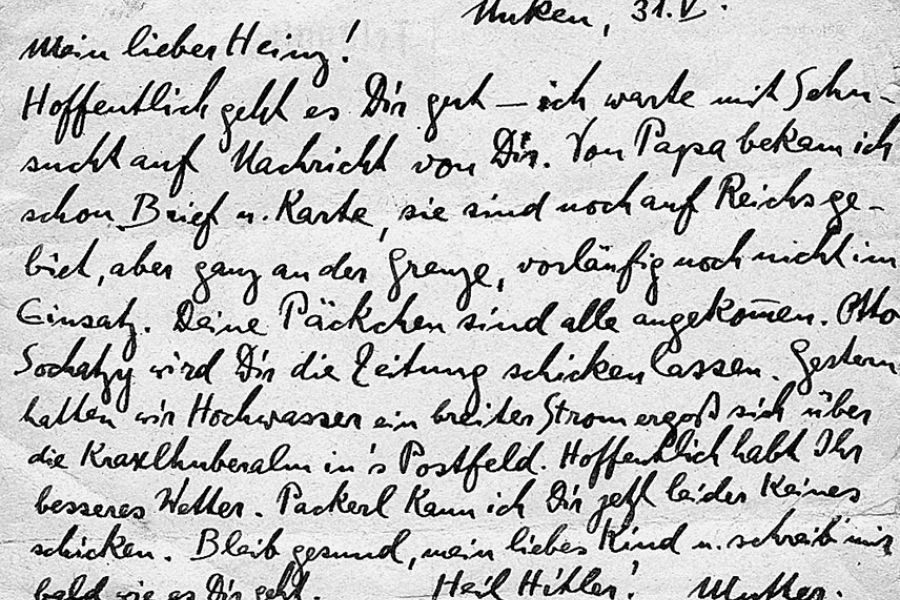 Unken, 31.V.
Mein lieber Heinz!
Hoffentlich geht es Dir gut – ich warte mit Sehn-
sucht auf Nachricht von Dir. Von Papa bekam ich
schon Brief u. Karte, sie sind noch auf Reichsge-
biet, aber ganz an der Grenze, vorläufig noch nicht im
Einsatz. Deine Päckchen sind alle angekom̄en. Otto
Sochatzy wird Dir die Zeitung schicken lassen. Gestern
hatten wir Hochwasser ein breiter Strom ergoß sich über
die Kraxlhuberalm in's Postfeld. Hoffentlich habt Ihr
besseres Wetter. Packerl kann ich Dir jetzt leider keines
schicken. Bleib gesund, mein liebes Kind u. schreib' mir
bald wie es Dir geht. Heil Hitler! Mutter.